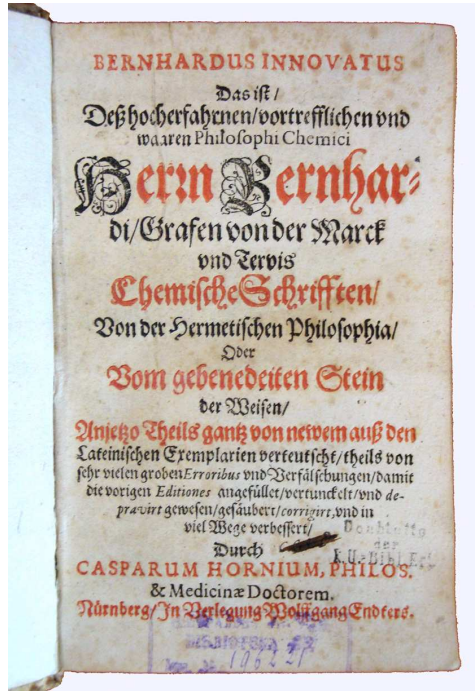 BERNHARDUS INNOVATUS
Das ist/
Deß hocherfahrnen/vortrefflichen vnd
waaren Philosophi Chemici
Herrn Bernhar-
di/Grafen von der Marck
vnd Tervis
Chemische Schrifften/
Von der Hermetischen Philosophia/
Oder
Vom gebenedeiten Stein
der Weisen/
Anjetzo Theils gantz von newem auß den
Lateinischen Exemplarien verteutscht/theils von
sehr vielen groben Erroribus vnd Verfälschungen/damit
die vorigen Editiones angefüllet/vertunckelt/vnd de-
pravirt gewesen/gesäubert/corrigirt,vnd in
viel Wege verbessert/
Durch
CASPARUM HORNIUM, PHILOS.
& Medicinæ Doctorem.
Nürnberg/In Verlegung Wolffgang Endters.
der